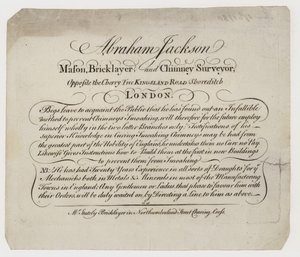 Abraham Jackson
Mason, Bricklayer, and Chimney Surveyor,
Opposite the Cherry Tree KINGSLAND ROAD Shoreditch
LONDON.
Begs leave to acquaint the Public that he has found out an Infallible
method to prevent Chimneys Smoaking, will therefore for the future employ
himself wholly in the two latter Branches only. Satisfactions of his
superior Knowledge in Curing Smoaking Chimneys may be had from
the greatest part of the Nobility of England, he undertakes them no Cure no Pay.
Likewise Gives Instructions how to Build them at the first in new Buildings
to prevent them from Smoaking.
NB: He has had Twenty Years Experience in all sorts of Draughts for ye
Mechanicks both in Metals & Minerals in most of the Manufacturing
Towns in England: Any Gentlemen or Ladies that please to favour him with
their Orders, will be duly waited on by Directing a Line to him as above
Bricklayer in Northumberland Street Charing Cross